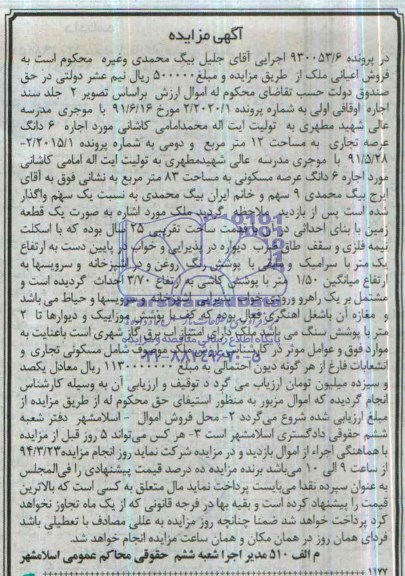 آگهی مزایده
در پرونده ۹۳۰۰۵۳/۶ اجرایی آقای جلیل بیگ محمدی وغیره محکوم است به
فروش اعیانی ملک از طریق مزایده و مبلغ ۵۰۰۰۰۰ ریال نیم عشر دولتی در حق
صندوق دولت حسب تقاضای محکوم له اموال ارزش براساس تصویر ۲ جلد سند
اجاره اوقافی اولی به شماره پرونده ۲/۲۰۲۰/۱ مورخ ۹۱/۶/۱۶ با موجری مدرسه
عالی شهید مطهری به تولیت ایت اله محمدامامی کاشانی مورد اجاره ۶ دانگ
عرصه تجاری به مساحت ۱۲ متر مربع و دومی به شماره پرونده ۲/۲۰۱۵/۱-
۹۱/۵/۲۸ با موجری مدرسه عالی شهیدمطهری به تولیت ایت اله امامی کاشانی
مورد اجاره ۶ دانگ عرصه مسکونی به مساحت ۸۳ متر مربع به نشانی فوق به آقای
ایرج بیگ محمدی ۹ سهم و خانم ایران بیگ محمدی به نسبت یک سهم واگذار
شده است پس از بازدید ملاحظه گردید ملک مورد اشاره به صورت یک قطعه
زمین با بنای احداثی در آن به قدمت ساخت تقریبی ۲۵ سال بوده که با اسکلت
نیمه فلزی و سقف طاق ضربی دیواره در پذیرایی و خواب در پایین دست به ارتفاع
یک متر با سرامیک و مابقی با پوشش رنگ روغن و در آشپزخانه و سرویسها به
ارتفاع میانگین ۱/۵۰ متر با پوشش کاشی به ارتفاع ۳/۷۰ احداث گردیده است و
مشتمل بر یک راهرو ورودی خواب پذیرایی آشپزخانه و سرویسها و حیاط می باشد
و مغازه آن باشغل آهنگری فعال بوده که کف با پوشش موزاییک و دیوارها تا ۲
متر با پوشش سنگ می باشد ملک دارای امتیاز آب برق گاز شهری است باعنایت به
موارد فوق و عوامل موثر در کارشناسی ارزش ملک موصوف شامل مسکونی تجاری و
انشعابات فارغ از هر گونه دیون احتمالی به مبلغ ۱۱۳۰۰۰۰۰۰۰ ریال معادل یکصد
و سیزده میلیون تومان ارزیاب می گرد د توقیف و ارزیابی آن به وسیله کارشناس
انجام گردیده که اموال مزبور به منظور استیفای حق محکوم له از طریق مزایده از
مبلغ ارزیابی شده شروع می‌گردد ۲- محل فروش اموال – اسلامشهر دفتر شعبه
ششم حقوقی دادگستری اسلامشهر است ۳- هر کس می‌تواند ۵ روز قبل از مزایده
با هماهنگی اجراء از اموال بازدید و در مزایده شرکت نماید روز انجام مزایده ۹۴/۳/۲۳
از ساعت ۹ الی ۱۰ می‌باشد برنده مزایده ده درصد قیمت پیشنهادی را فی‌المجلس
به عنوان سپرده نقدا می‌بایست پرداخت نماید مال متعلق به کسی است که بالاترین
قیمت را پیشنهاد کرده است و بقیه بها در فرجه قانونی که از یک ماه تجاوز نخواهد
کرد پرداخت خواهد شد ضمنا چنانچه روز مزایده به عللی مصادف با تعطیلی باشد
فردای همان روز در همان مکان و همان ساعت مزایده انجام خواهد شد.
م الف ۵۱۰ مدیر اجرا شعبه ششم حقوقی محاکم عمومی اسلامشهر
۱۱۷۷